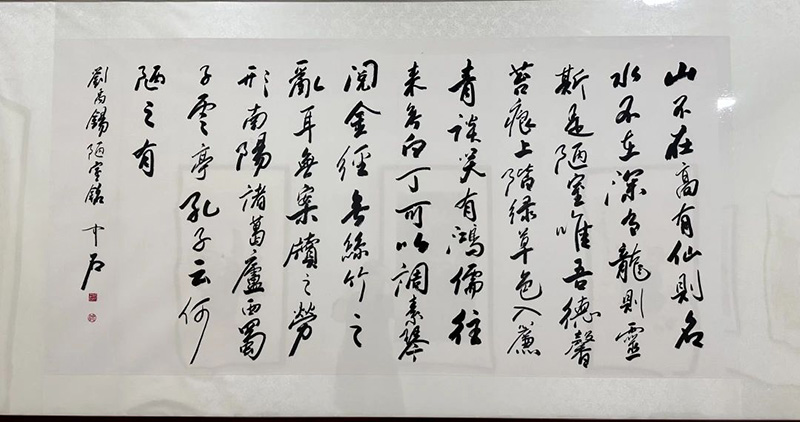 山不在高有仙則名
水不在深有龍則靈
斯是陋室唯吾德馨
苔痕上階緑草色入簾
青談笑有鴻儒往
来無白丁可以調素琴
閲金經無絲竹之
亂耳無案牘之勞
形南陽諸葛廬西蜀
子雲亭孔子云何
陋之有
劉禹錫陋室銘 中石